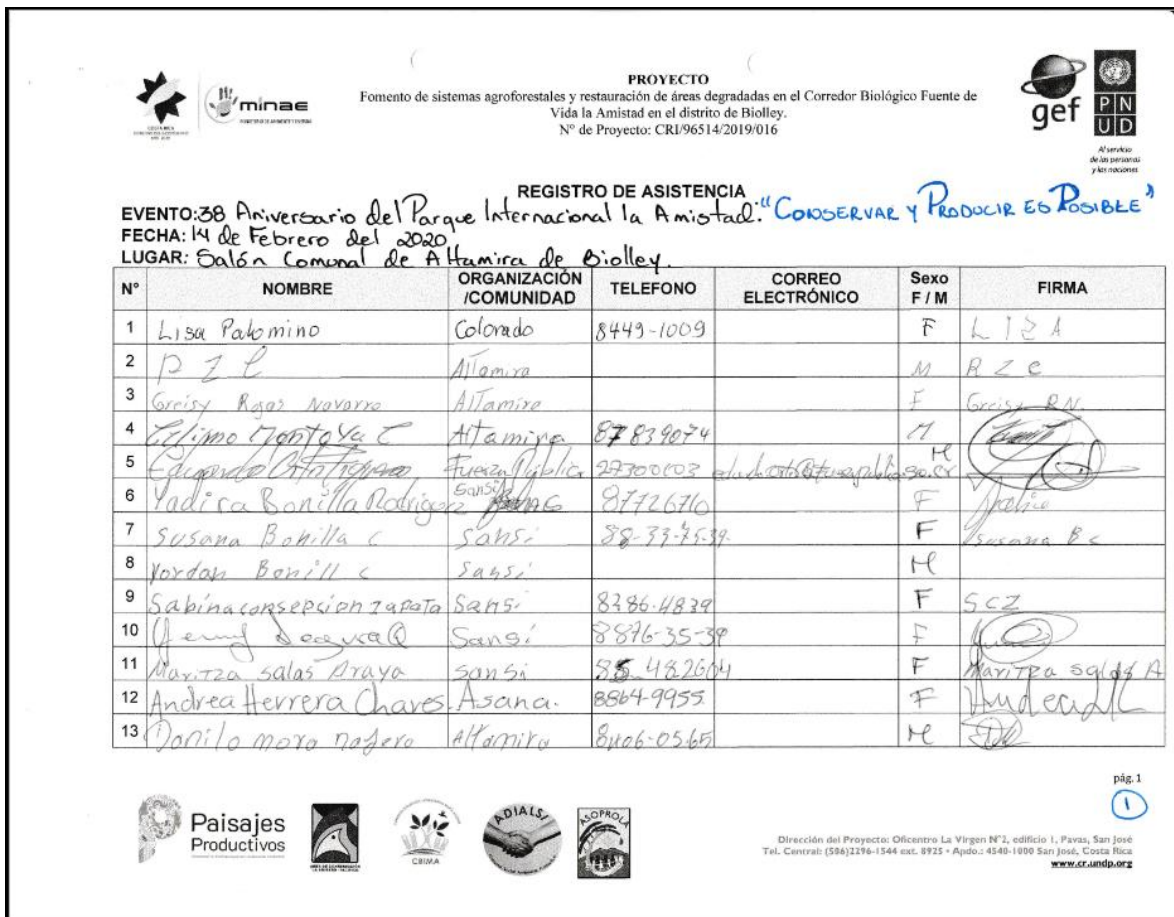 minae
MINISTERIO DE AMBIENTE Y ENERGÍA
PROYECTO
Fomento de sistemas agroforestales y restauración de áreas degradadas en el Corredor Biológico Fuente de
Vida la Amistad en el distrito de Biolley.
N° de Proyecto: CRI/96514/2019/016
gef
P N
U D
Al servicio
de las personas
y las naciones
REGISTRO DE ASISTENCIA
EVENTO: 38 Aniversario del Parque Internacional la Amistad: "CONSERVAR Y PRODUCIR ES POSIBLE"
FECHA: 14 de Febrero del 2020
LUGAR: Salón Comunal de Altamira de Biolley.
N° NOMBRE ORGANIZACIÓN /COMUNIDAD TELEFONO CORREO ELECTRÓNICO Sexo F / M FIRMA
1 Lisa Palomino Colorado 8449-1009 F LIZA
2 Altamira M RZC
3 Greisy Rojas Navarro Altamira F Greisy RN.
4 Montoya C Altamira 87839074 M
5 Fuerza Pública M
6 Yadira Bonilla Rodriguez Sansi 87726710 F
7 Susana Bonilla C Sansi 88-33-75-39. F Susana B C
8 Yordan Bonill C Sansi M
9 Sabina consepcion zapata Sansi 8386-4839 F SCZ
10 Segura Q Sansí 8876-35-39 F
11 Maritza Salas Araya Sansi F Maritza salas A
12 Andrea Herrera Chaves. Asana. 8864-9955 F
13 Danilo mora Altamira M
pág. 1
1
Paisajes
Productivos
CBIMA
ADIALSI
ASOPROLA
Dirección del Proyecto: Oficentro La Virgen N°2, edificio 1, Pavas, San José
Tel. Central: (506)2296-1544 ext. 8925 • Apdo.: 4540-1000 San José, Costa Rica
www.cr.undp.org